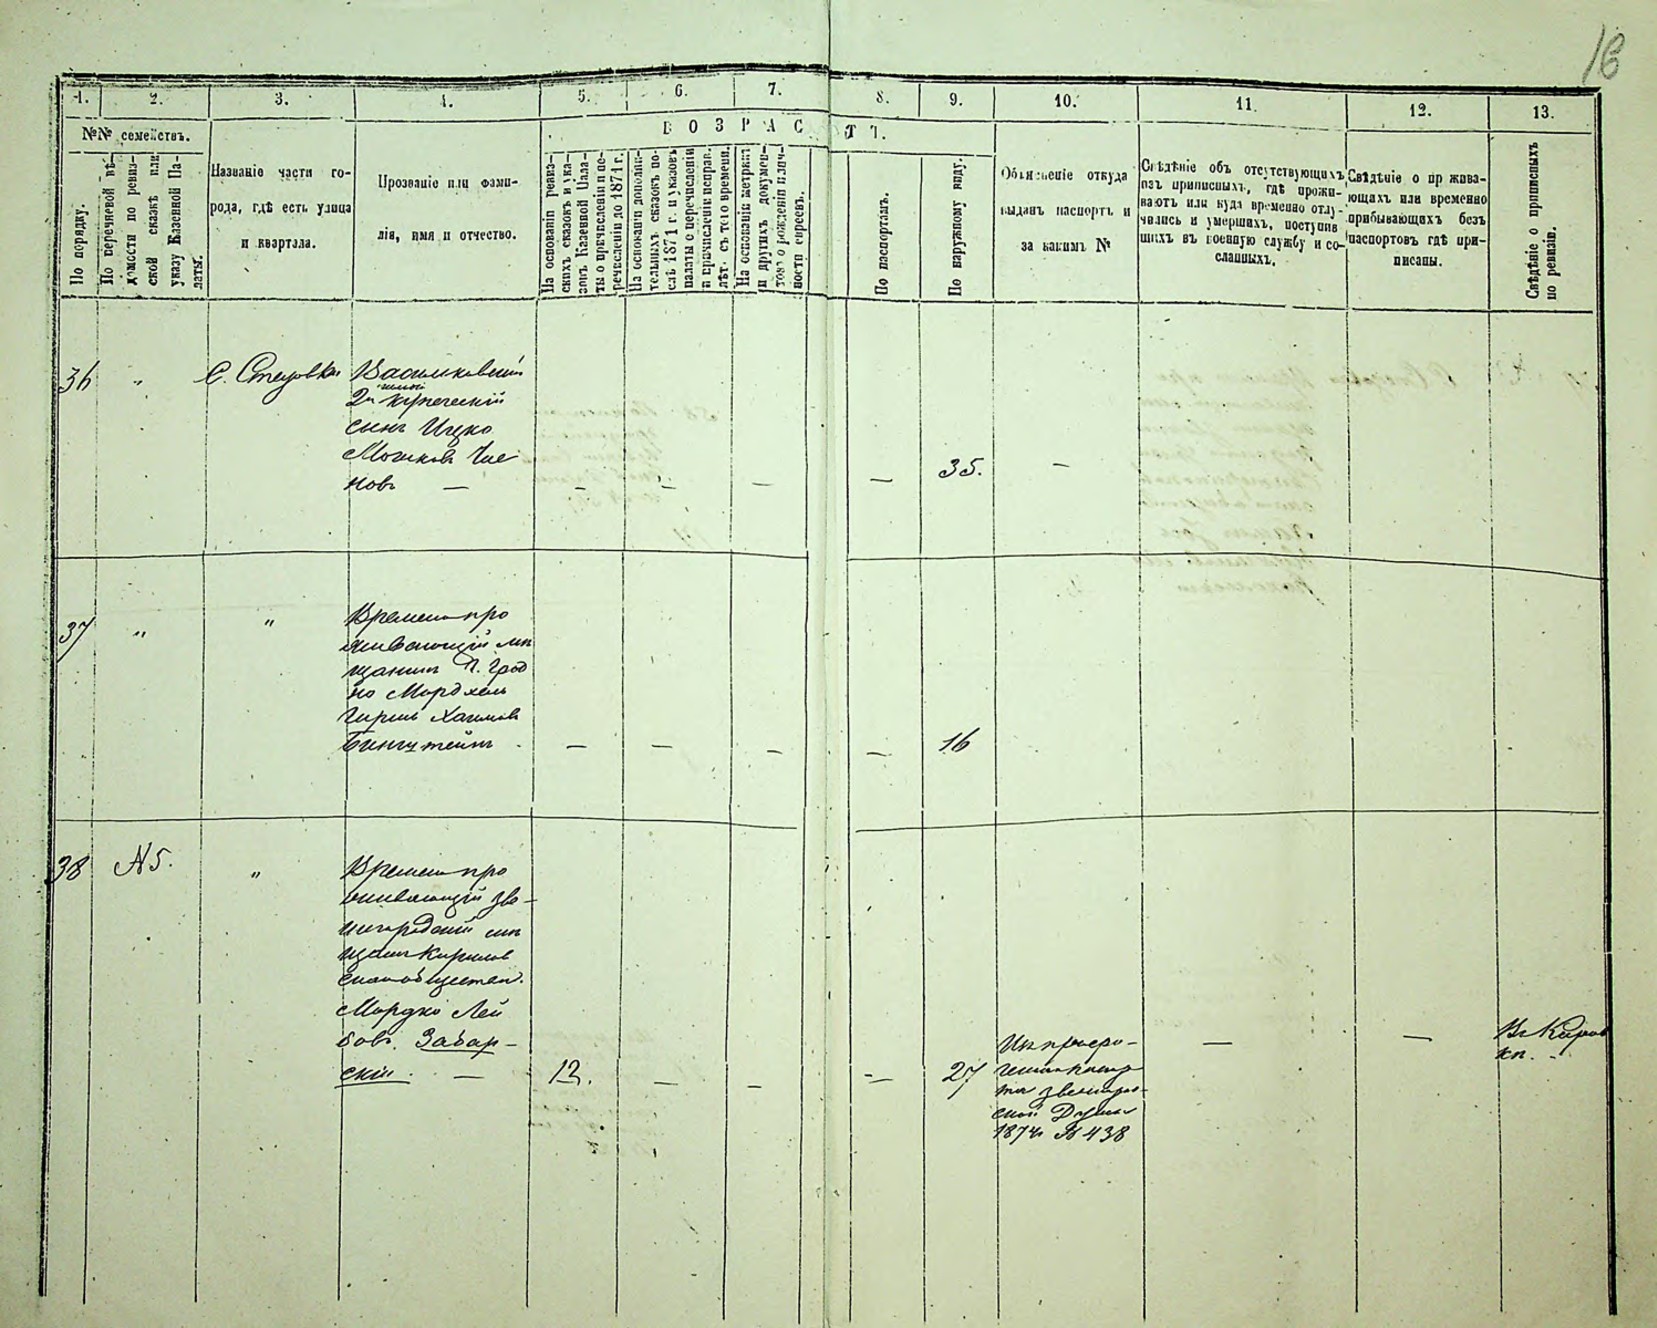 16
1. 2. 3. 4. 5. 6. 7. 8. 9. 10. 11. 12. 13.
№№ семействъ.
ВОЗРАСТЪ.
По порядку.
По перечневой вѣ-
домости по ревиз-
ской сказкѣ или
указу Казенной Па-
латы.
Названіе части го-
рода, гдѣ есть улица
и квартала.
Прозваніе или фами-
лія, имя и отчество.
На основаніи ревиз-
скихъ сказокъ и ука-
зовъ Казенной Пала-
ты о причисленіи и пе-
речисленіи до 1871 г.
На основаніи дополни-
тельныхъ сказокъ по-
слѣ 1871 г. и указовъ
палаты с перечисленіи
и причисленіи исправ.
лѣт. с того времени.
На основаніи метрик.
и других докумен-
товъ о рожденіи и лич-
ности евреевъ.
По паспортамъ.
По наружному виду.
Объясненіе откуда
выданъ паспортъ и
за какимъ №
Свѣдѣніе объ отсутствующихъ
изъ приписныхъ, гдѣ прожи-
ваютъ или куда временно отлу-
чались и умершихъ, поступив
шихъ въ военную службу и со-
сланныхъ.
Свѣдѣніе о прожива-
ющихъ или временно
прибывающихъ безъ
паспортовъ гдѣ при-
писаны.
Свѣдѣніе о приписныхъ
по ревизіи.
36 " С.
Васильковскій
2й купеческій
сынъ Ицко
Мошковъ
новъ — — — — — 35. —
37 " "
Времено про
живающій мѣ
щанинъ Г. Грод
но Мордхель
Гиршъ Хаимовъ
— — — — 16
38 №5. "
Времено про
живающій Зве-
нигородскій мѣ
щан
Мордко Лей
бовъ Забар-
скій. — 12. — — — 27
1874 № 438
— —